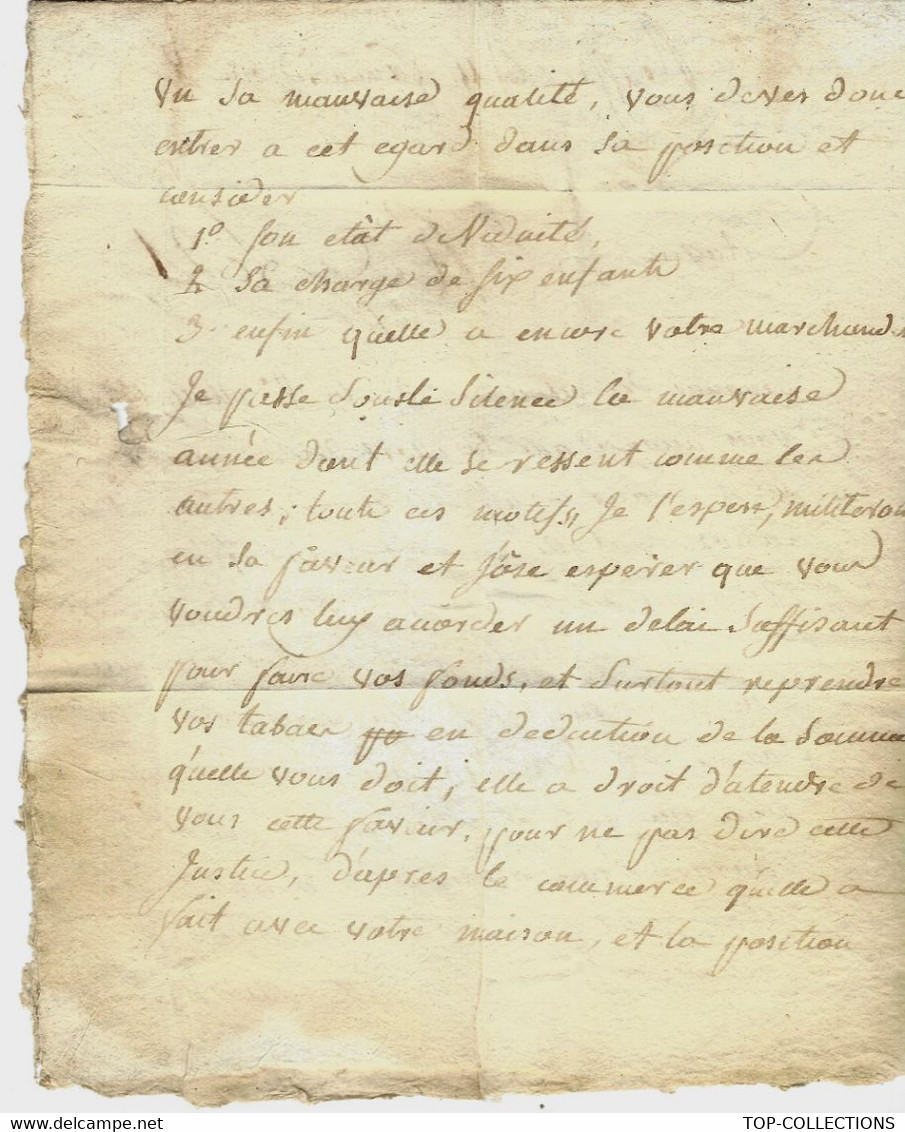 vu sa mauvaise qualité, vous devés donc
entrer a cet egard dans sa position et
considerer
1º son etât de Viduité,
2 sa charge de six enfants
3 enfin qu'elle a encore votre marchandi
Je passe sous le silence la mauvaise
année dont elle se ressent comme les
autres; touts ces motifs, Je l'espere, militeron
en sa faveur et J'ôse espérer que vous
voudrés luy accorder un delai suffisant
pour faire vos fonds, et surtout reprendre
vos tabacs en deduction de la somme
qu'elle vous doit; elle a droit d'atendre de
vous cette faveur, pour ne pas dire cette
Justice, d'après le commerce qu'elle a
fait avec votre maison, et la position
TOP-COLLECTIONS